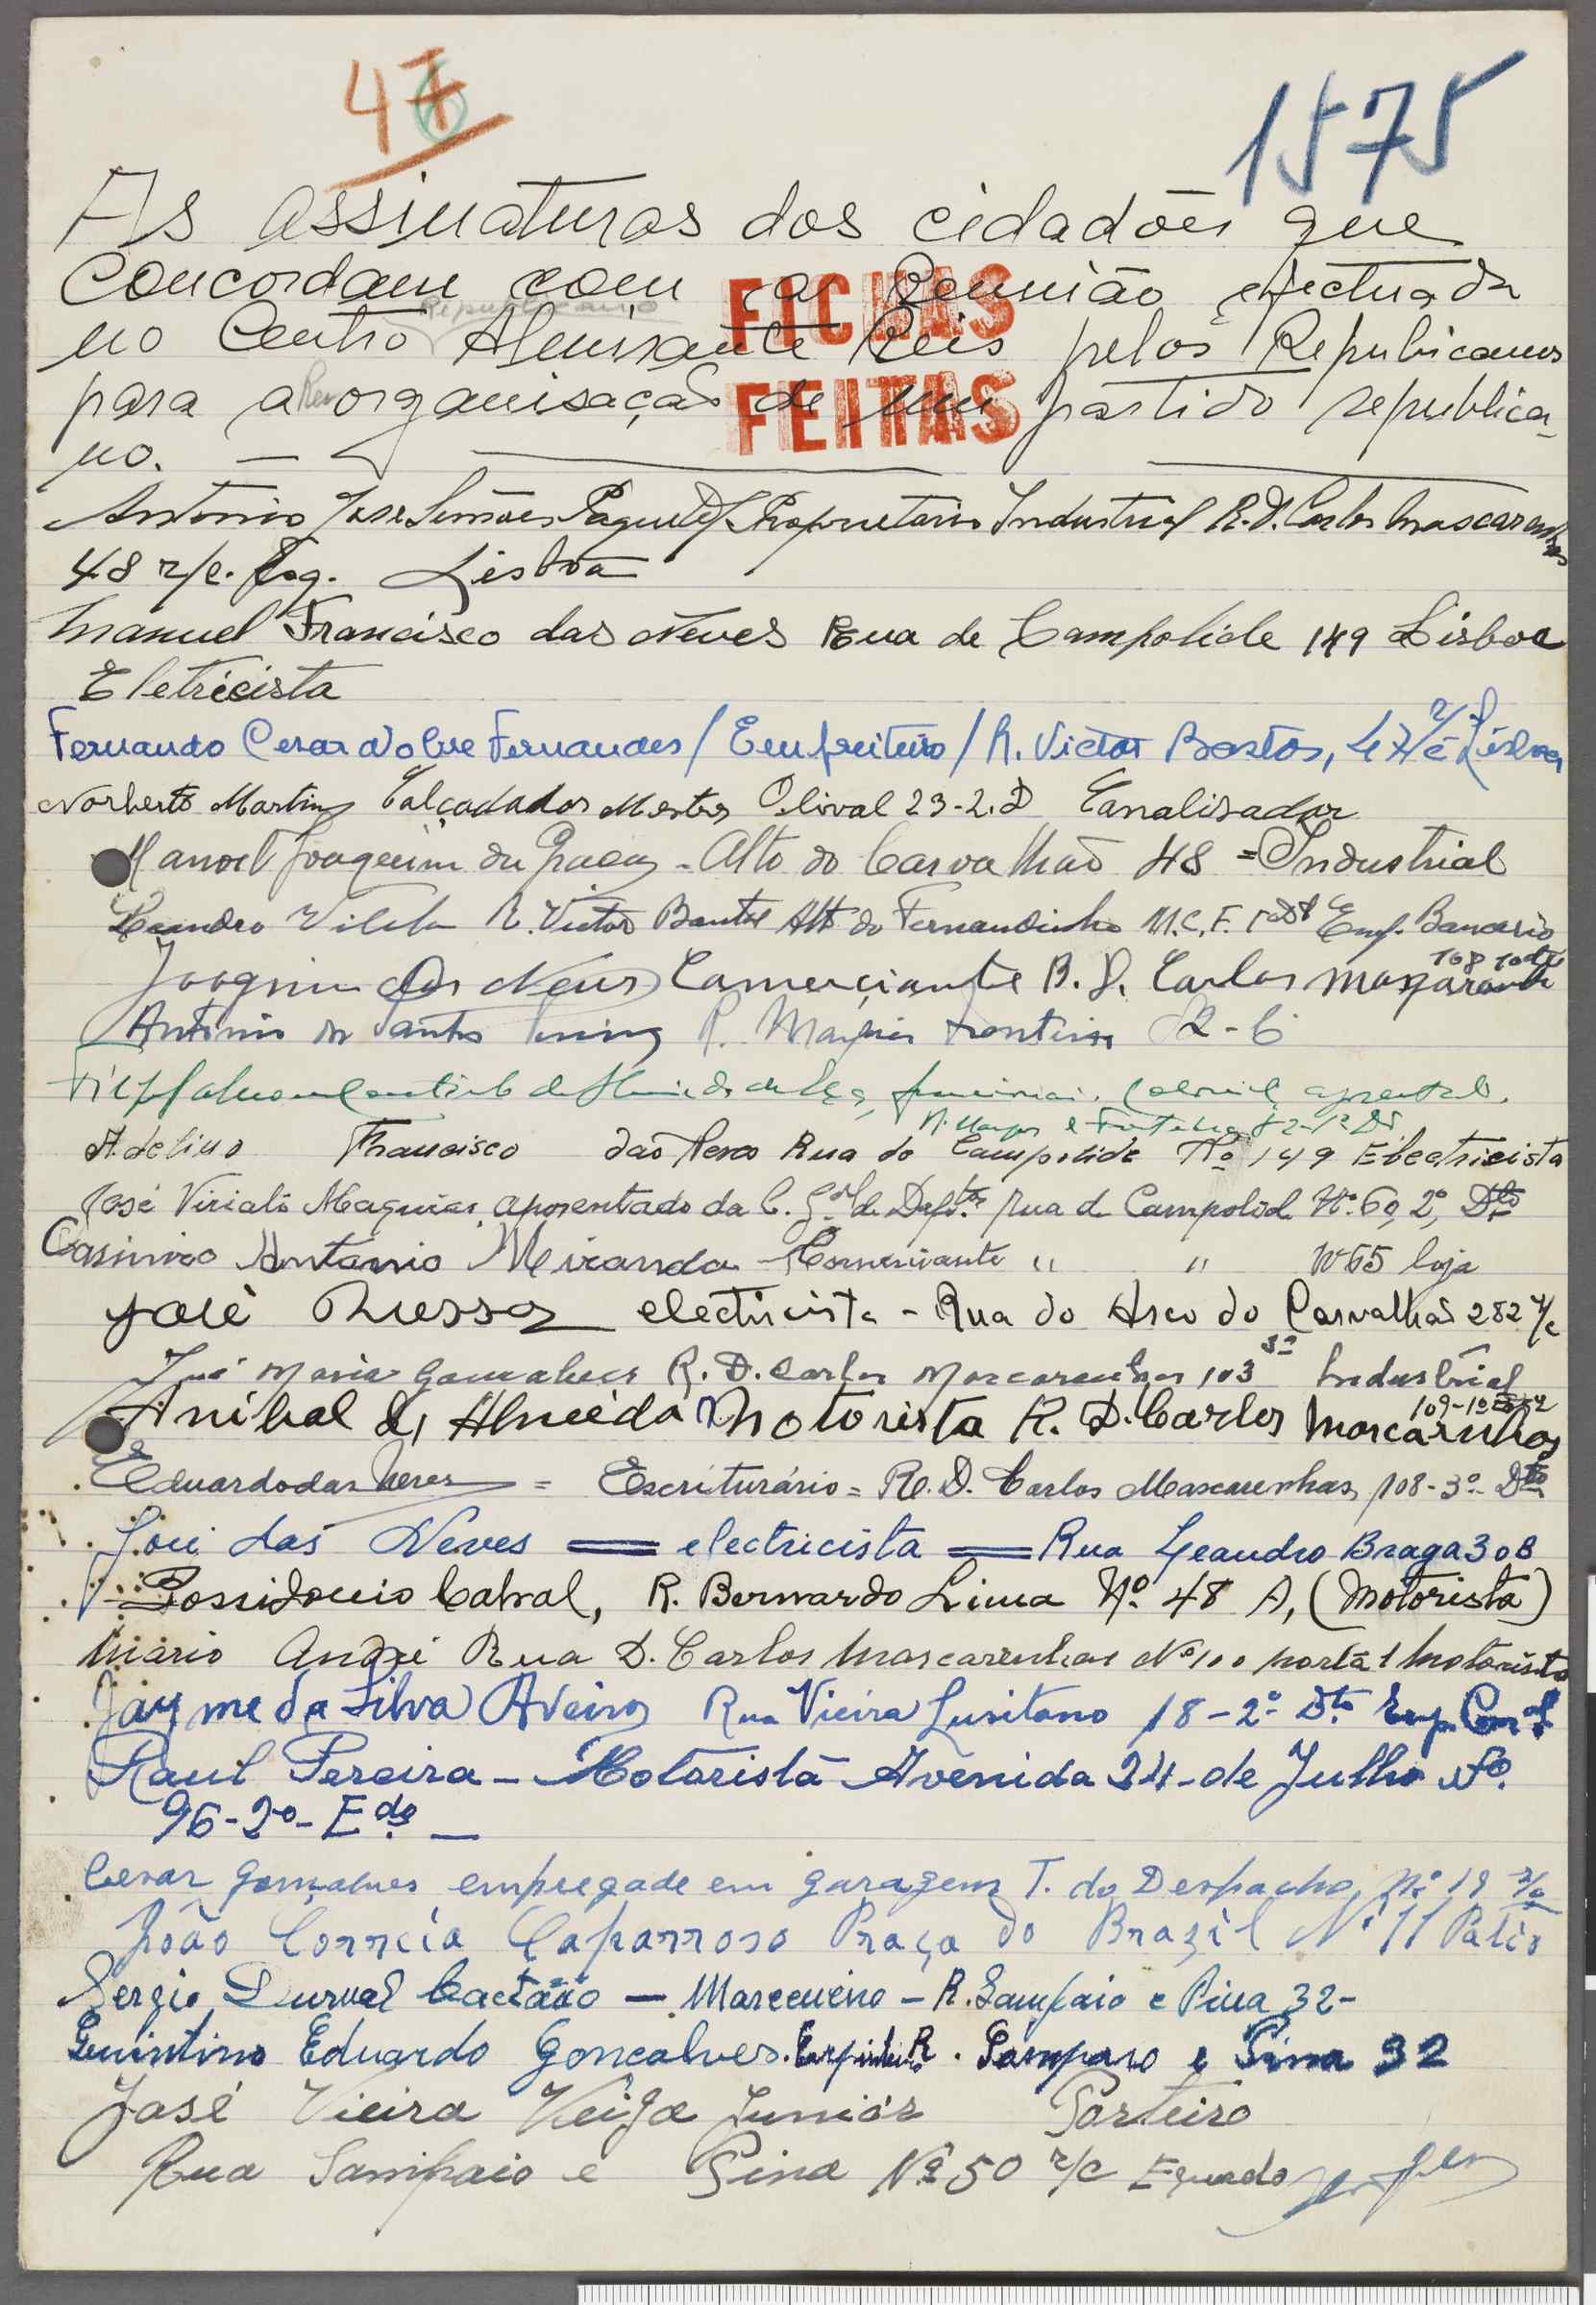 47
1575
As assinaturas dos cidadões que
concordam com a Reunião efectuada
Republicano
no Centro Almirante Reis pelos Republicanos
para a Reorganisação de um partido republica-
no.
FICHAS
FEITAS
António José Simões Paquete Proprietário Industrial R. D. Carlos Mascarenhas
48 r/c. Esq. Lisboa
Manuel Francisco das Neves Rua de Campolide 149 Lisboa
Eletricista
Fernando Cesar Fernandes / Empreiteiro / R. Victor Bastos, r/c Lisboa
Norberto Martins Calçada dos Mestres Olival 23-2.D Canalisador
Manoel Joaquim da Graça - Alto do Carvalhão 48 = Industrial
Leandro R. Victor Bastos Alto do Fernandinho M.C.F. Emp. Bancario
Joaquim das Neves Comerciante R. D. Carlos Mascarenhas
António dos Santos R. Marquês Fronteira
Coronel aposentado.
Adelino Francisco das Neves Rua do Campolide No 149 Electricista
José Viriato Magnias, aposentado da C. G.al de Depos. Rua de Campolide Nº. 60, 2º, Dto
Casimiro Antonio Miranda - Comerciante " " Nº 65 loja
José Russo electricista - Rua do Arco do Carvalhão 282 r/c
3º
José Maria Gonçalves R. D. Carlos Mascarenhas 103 Industrial
Anibal d' Almeida Motorista R. D. Carlos Mascarenhas
Eduardo das Neves = Escriturário = R. D. Carlos Mascarenhas, 108-3º Dto
José das Neves = electricista = Rua Leandro Braga 30B
Possidonio Cabral, R. Bernardo Lima Nº 48 A, (Motorista)
Mário André Rua D. Carlos Mascarenhas Nº 100 porta 1 Motorista
Jayme da Silva Aveiro Rua Vieira Lusitano 18-2º Dto Emp. Com.al
Raul Pereira - Motorista Avenida 24-de Julho Nº.
96-2º-Edo
Cesar Gonçalves empregado em garagem T. do Despacho, nº 19 r/c
João Correia Caparroso Praça do Brazil Nº 11 Patio
Sergio Durval Caetano - Marceneiro - R. Sampaio e Pina 32-
Quintino Eduardo Goncalves. Carpinteiro R. Sampaio e Pina 32
José Vieira Veiga Juniór Porteiro
Rua Sampaio e Pina Nº 50 r/c Esquerdo